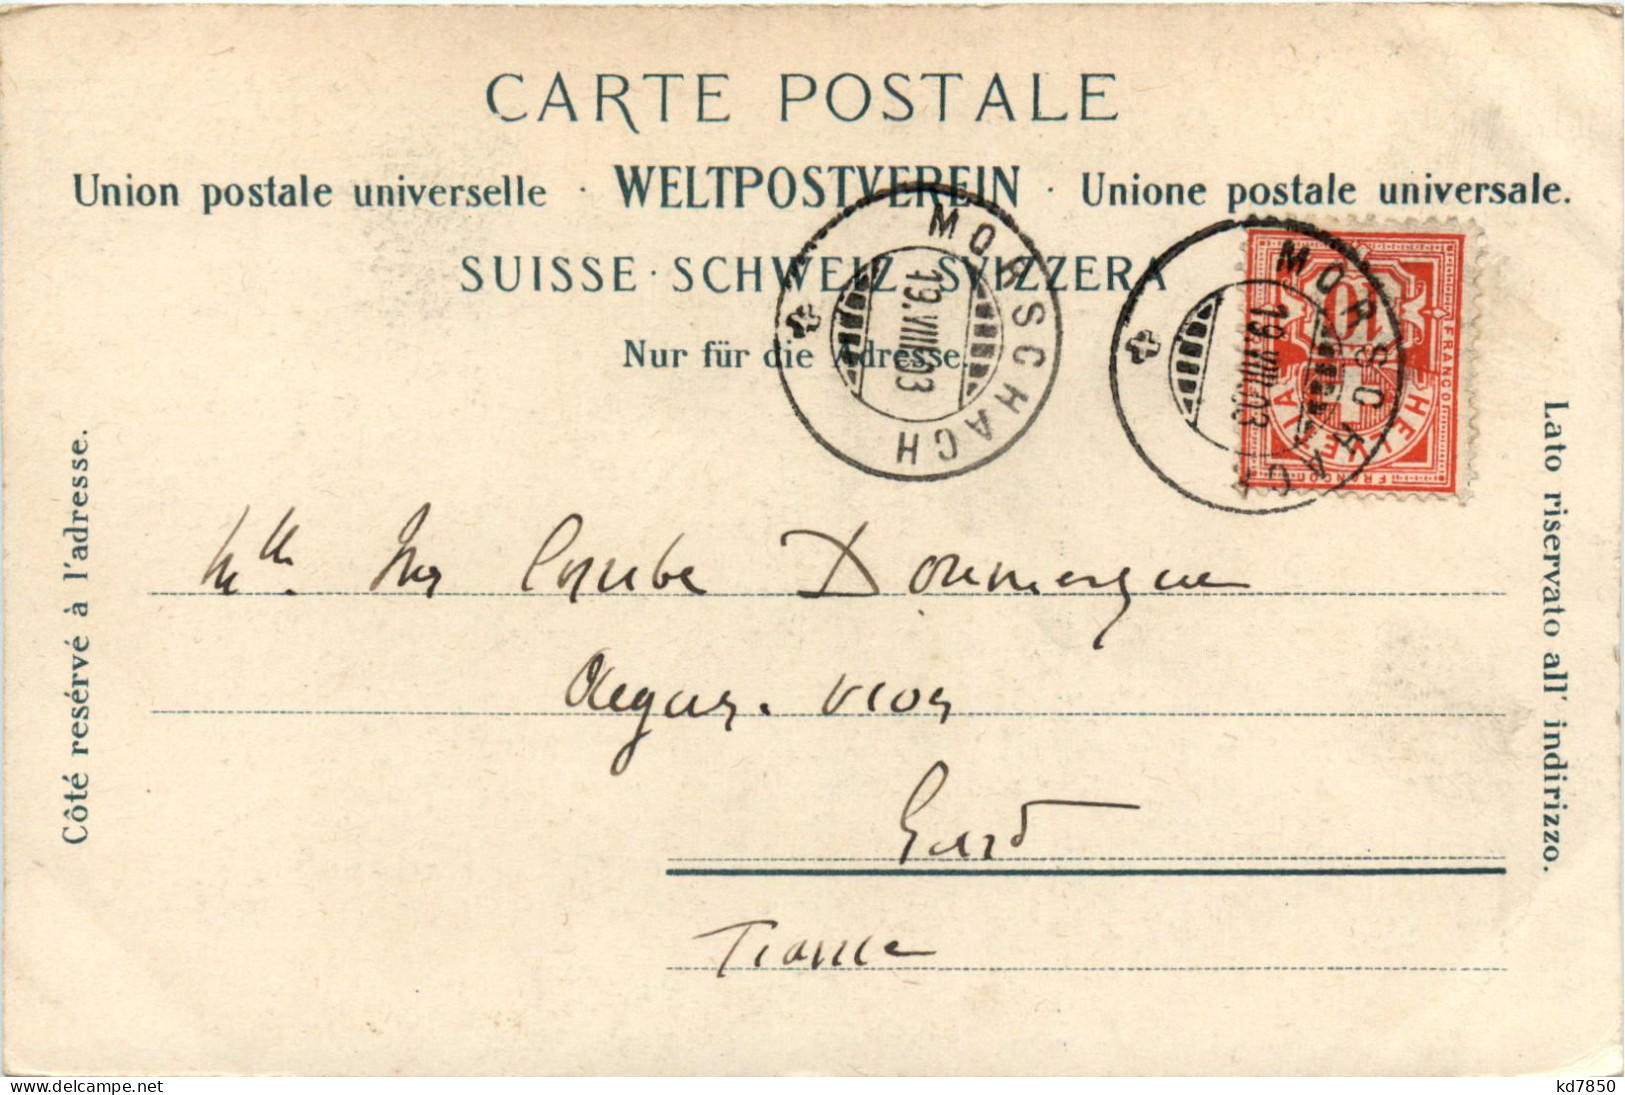 CARTE POSTALE
Union postale universelle · WELTPOSTVEREIN · Unione postale universale.
SUISSE · SCHWEIZ · SVIZZERA
Nur für die Adresse.
MORSCHACH
19.VIII.03
MORSCHACH
19.VIII.03
10
FRANCO
HELVETIA
FRANCO
Côté resérvé à l'adresse.
Lato riservato all' indirizzo.
Mlle Doumergue
Aigues-Vives
Gard
France
kd7850